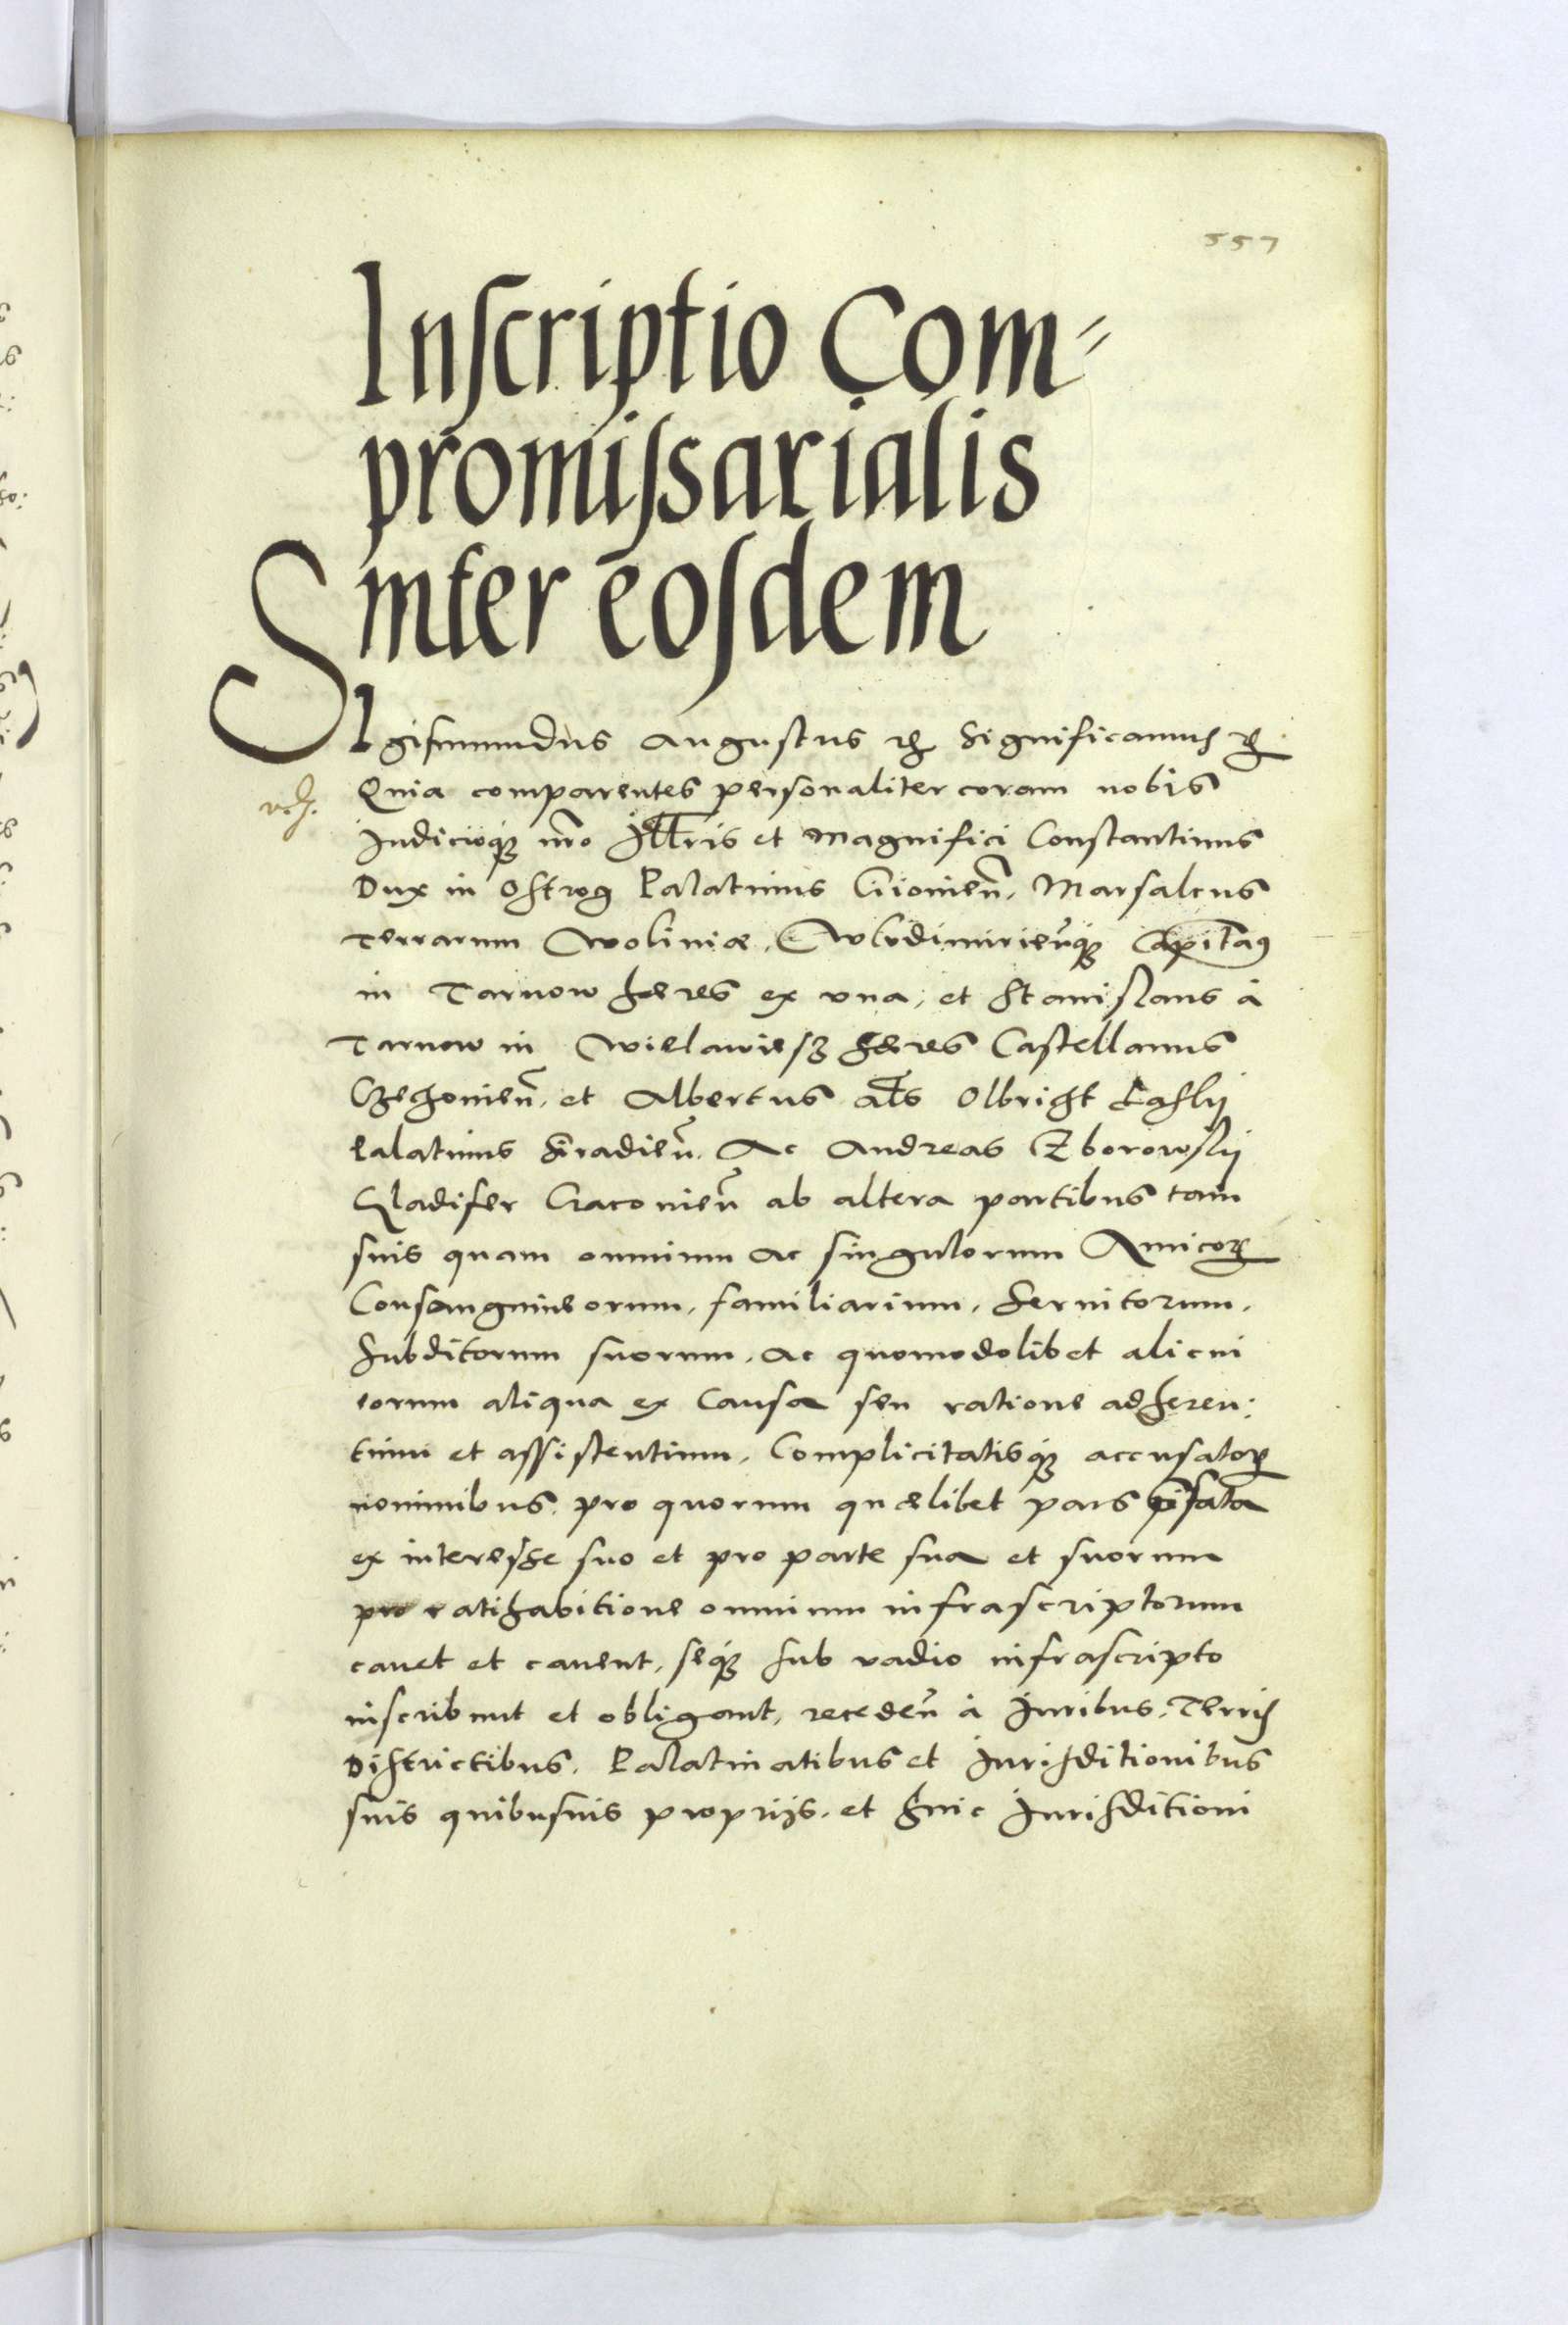 557
Inscriptio Com=
promissarialis
inter eosdem
SIgismundus Augustus etc Significamus etc
Quia comparentes personaliter coram nobis
Iudicioque nro Illris et Magnifici Constantinus
Dux in Ostrog Palatinus Kiiouien. Marsalcus
Terrarum Woliniæ, Wlodimirienque Capitaneus
in Tarnow heres ex vna, et Stanislaus à
Tarnow in Wielawiesz heres Castellanus
Czechouien. et Albertus als Olbricht Laskij
Palatinus Siradien. Ac Andreas Zborowskij
Gladifer Cracouien ab altera partibus tam
suis quam omnium ac singulorum Amicor
Consanguineorum, familiarium, Seruitorum,
Subditorum suorum, ac quomodolibet alicui
eorum aliqua ex Causa seu ratione adheren:
tium et assistentium, Complicitatisque accusator
nominibus, pro quorum quælibet pars
ex interesse suo et pro parte sua et suorum
pro ratihabitione omnium infrascriptorum
cauet et cauent, seque sub vadio infrascripto
inscribunt et obligant, receden à Iuribus, Terris
Districtibus, Palatinatibus et Iurisditionibus
suis quibusuis proprijs, et huic Iurisditioni